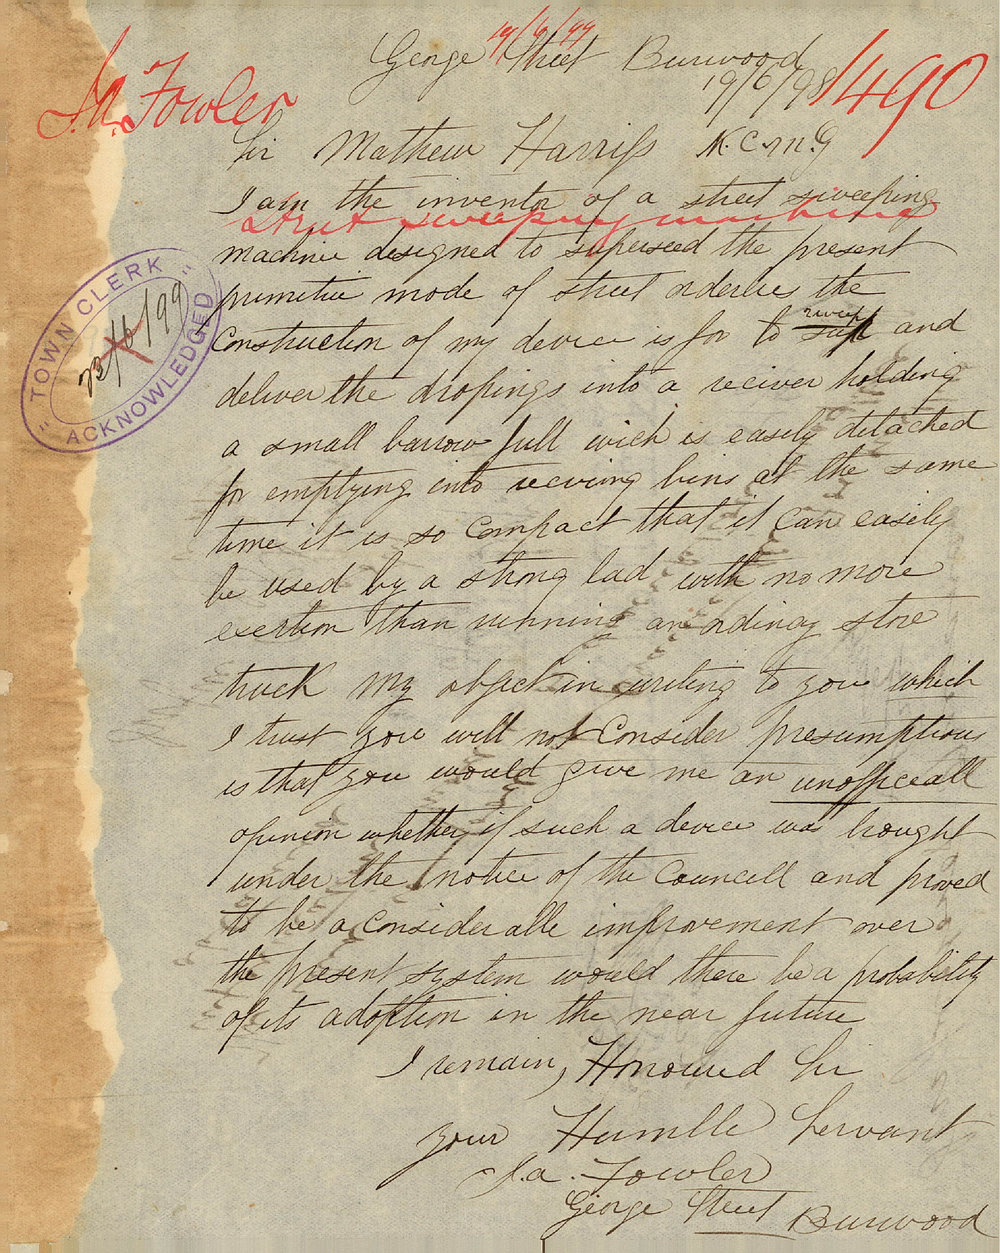 19/6/99
George Street Burwood
19/6/98
1490
J.A. Fowler
Sir Mathew Harriss K.C.M.G
I am the inventor of a street sweeping
Street sweeping machine
machine designed to superseed the present
primitive mode of street orderlies the
TOWN CLERK
23/6/99
ACKNOWLEDGED
Construction of my device is for to sweep and
deliver the dropings into a reciver holding
a small barrow full wich is easily detached
for emptying into receiving bins at the same
time it is so Compact that it can easily
be used by a strong lad with no more
exertion than running an ordinay store
truck My object in writing to you which
I trust you will not Consider presumptious
is that you would give me an unofficeall
opinion whether if such a device was brought
under the notice of the Councill and proved
to be a Considerable improvement over
the present system would there be a probability
of its adoption in the near future
I remain, Honoured Sir
your Humble Servant
J.A. Fowler
George Street Burwood